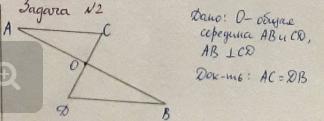 Задача №2
A
C
O
D
B
Дано: О - общая
середина АВ и CD,
AB ⊥ CD
Док-ть: AC = DB